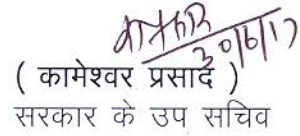 30/6/17
( कामेश्वर प्रसाद )
सरकार के उप सचिव